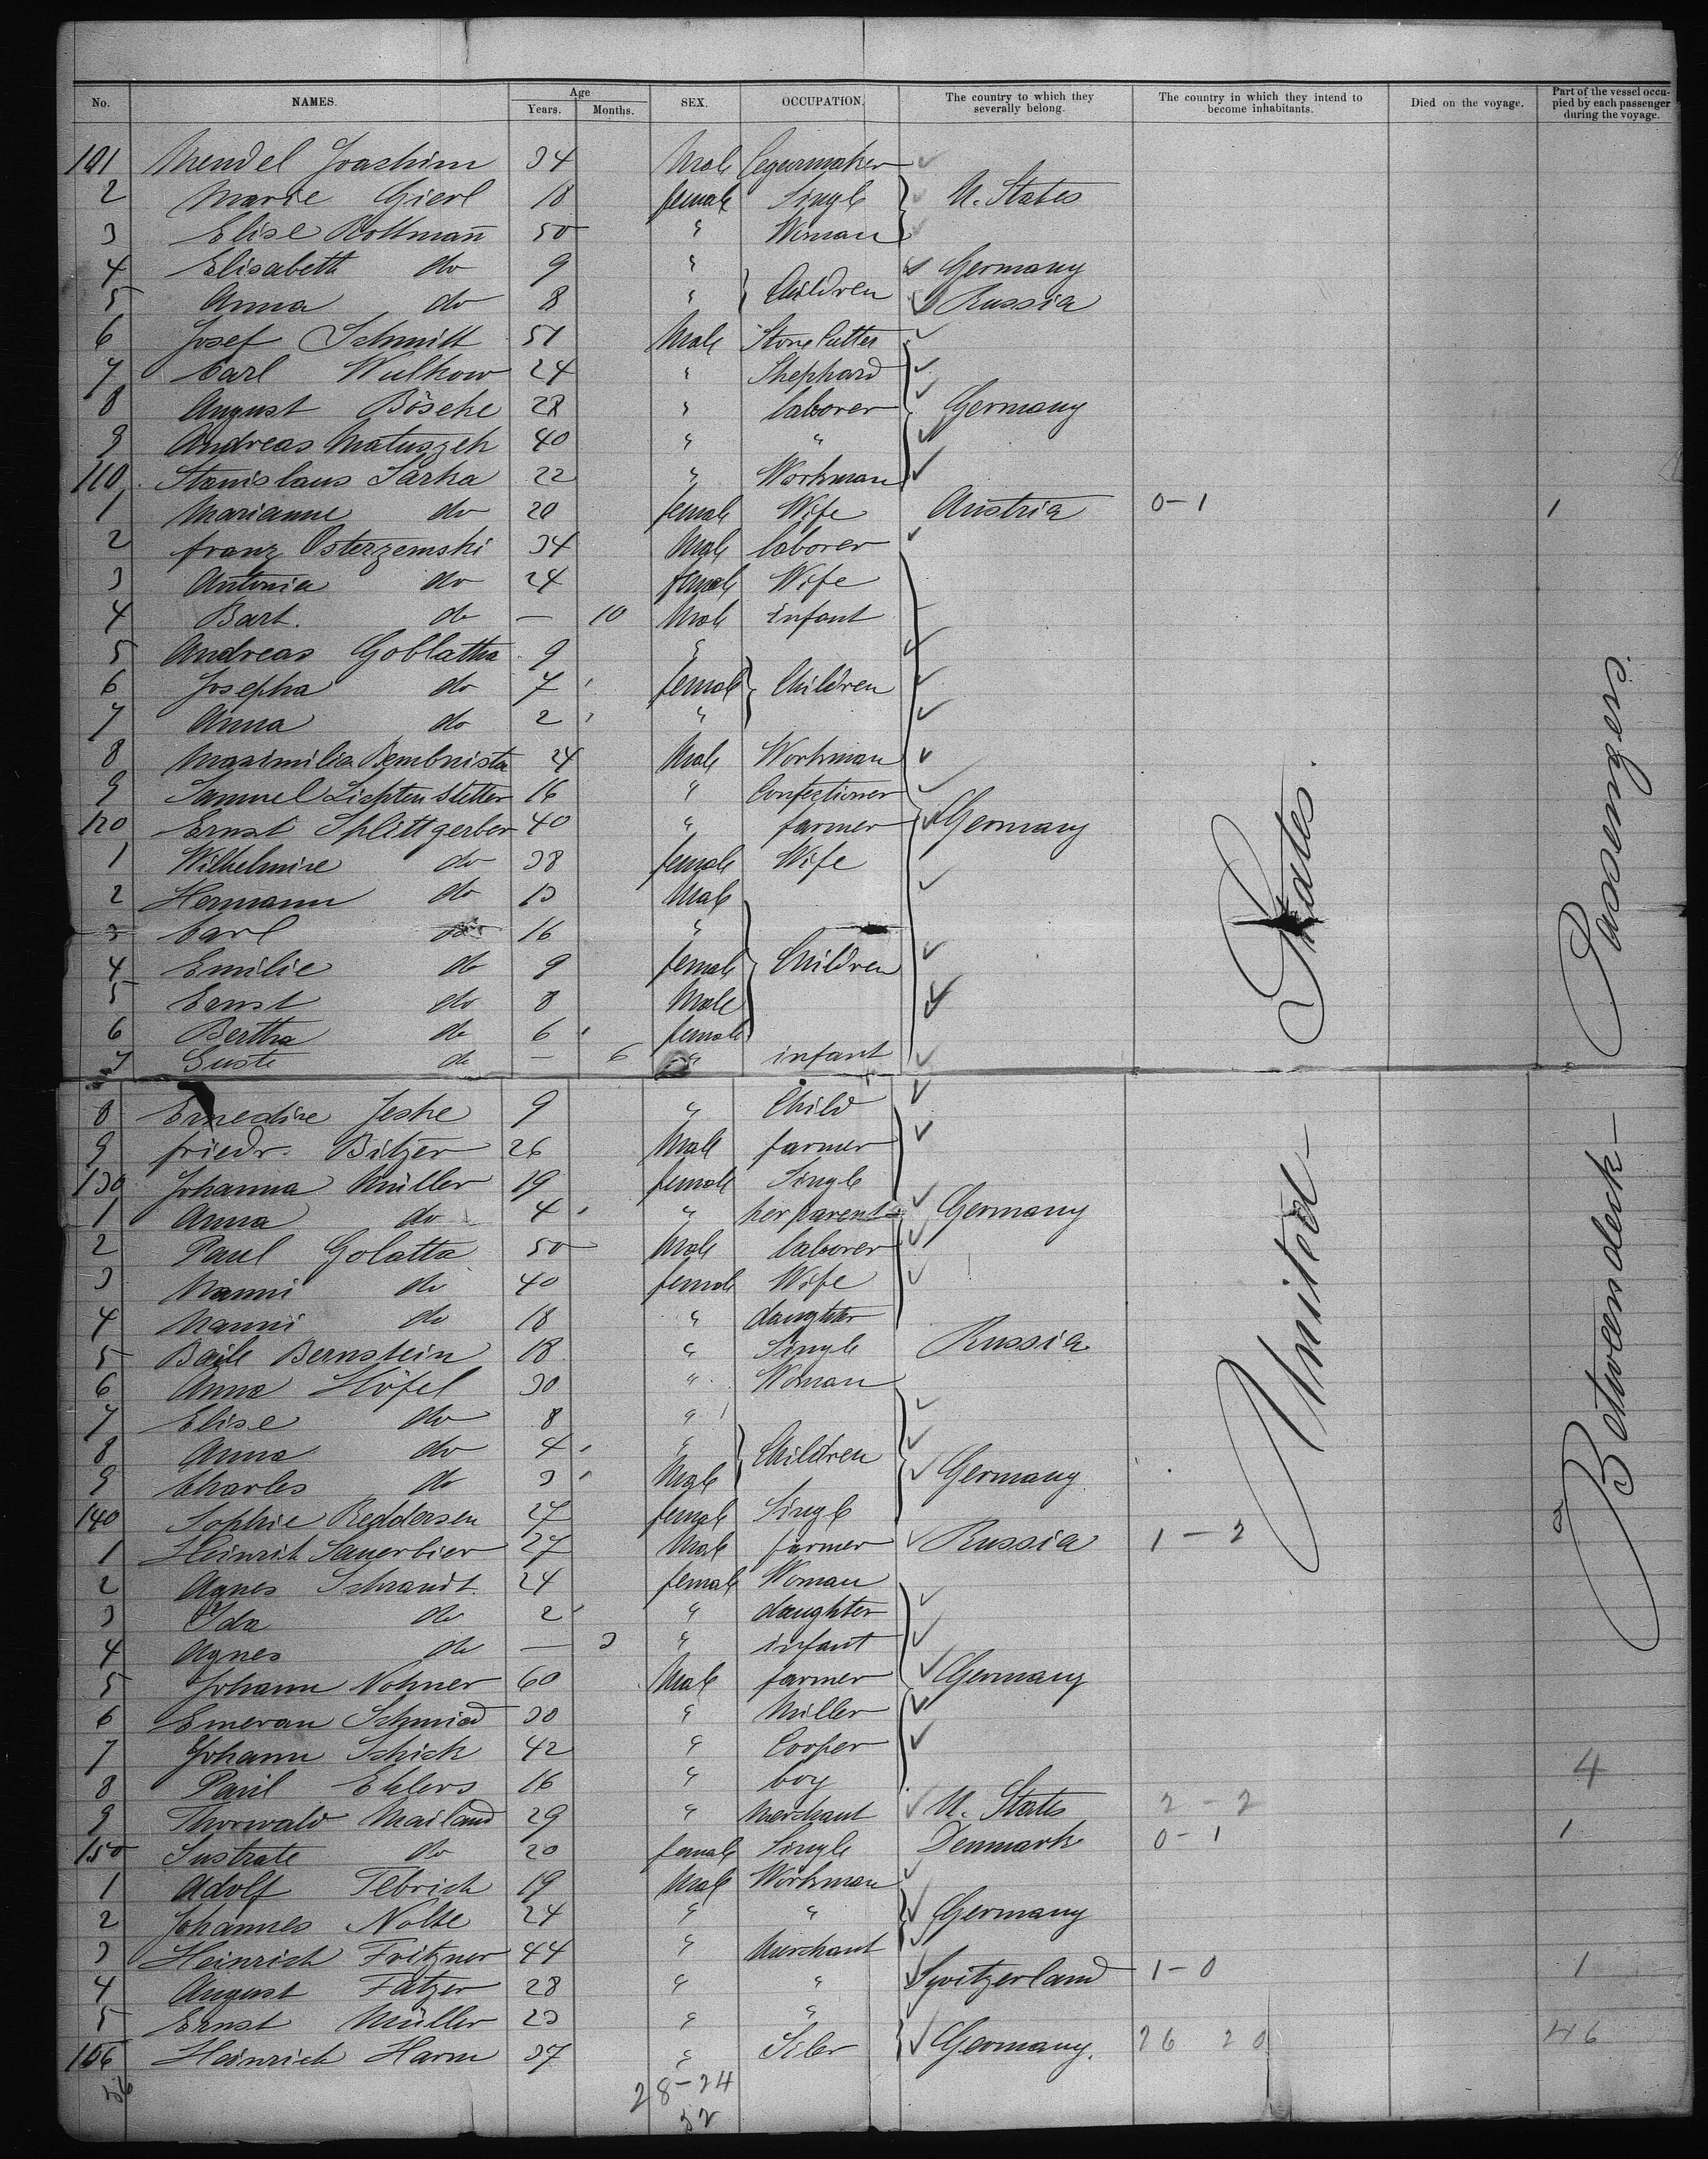 No. NAMES. Age Years. Months. SEX. OCCUPATION. The country to which they severally belong. The country in which they intend to become inhabitants. Died on the voyage. Part of the vessel occupied by each passenger during the voyage.
101 Mendel Joachim 34 Male Cegarmaker
2 Marie Gierl 18 female Single U. States
3 Elise Rottmann 50 " Woman
4 Elisabeth do 9 " Germany
5 Anna do 8 " Children Russia
6 Josef Schmitt 51 Male Stone Cutter
7 Carl Wulkow 24 " Shephard
8 August Böseke 28 " laborer Germany
9 Andreas Matuszek 40 " "
110 Stanislaus Sarka 22 " Workman
1 Marianne do 20 female Wife Austria 0-1 1
2 franz Osterzemski 34 Male laborer
3 Antonia do 24 female Wife
4 Bart. do — 10 Male infant
5 Andreas Goblatka 9 "
6 Josepha do 7 female Children
7 Anna do 2 "
8 Maximilia Bembnista 24 Male Workman
9 Samuel Lichtenstetter 16 " Confectioner
120 Ernst Splittgerber 40 " farmer Germany
1 Wilhelmine do 38 female Wife
2 Hermann do 13 Male
3 Carl do 16 "
4 Emilie do 9 female Children
5 Ernst do 8 Male
6 Bertha do 6 female
7 Guste do — 6 " infant
8 Ernedine Jeske 9 " Child
9 friedr. Bitzer 26 Male farmer
130 Johanna Müller 19 female Single
1 Anna do 4 " her parent Germany
2 Paul Golatta 50 Male laborer
3 Nanni do 40 female Wife
4 Nanni do 18 " daughter
5 Baile Bernstein 18 " Single Russia
6 Anna Höfel 30 " Woman
7 Elise do 8 "
8 Anna do 4 " Children
9 Charles do 3 Male Germany
140 Sophie Reddersen 27 female Single
1 Heinrih Sauerbier 27 Male farmer Russia 1-2
2 Agnes Schrandt 24 female Woman
3 Ida do 2 " daughter
4 Agnes do — 3 " infant
5 Johann Nohner 60 Male farmer Germany
6 Emeran Schmied 30 " Miller
7 Johann Schick 42 " Cooper
8 Paul Ehlers 16 " boy 4
9 Thorwald Mailand 29 " Merchant U. States 2-2
150 Sustrate do 20 female Single Denmark 0-1 1
1 Adolf Tebrich 19 Male Workman
2 Johannes Nolte 24 " " Germany
3 Heinrich Fritzner 44 " Merchant
4 August Fatzer 28 " " Switzerland 1-0 1
5 Ernst Müller 23 " "
156 Heinrich Harm 37 " Germany. 26 20 46
56 28-24
52
United States.
Between deck Passengers.